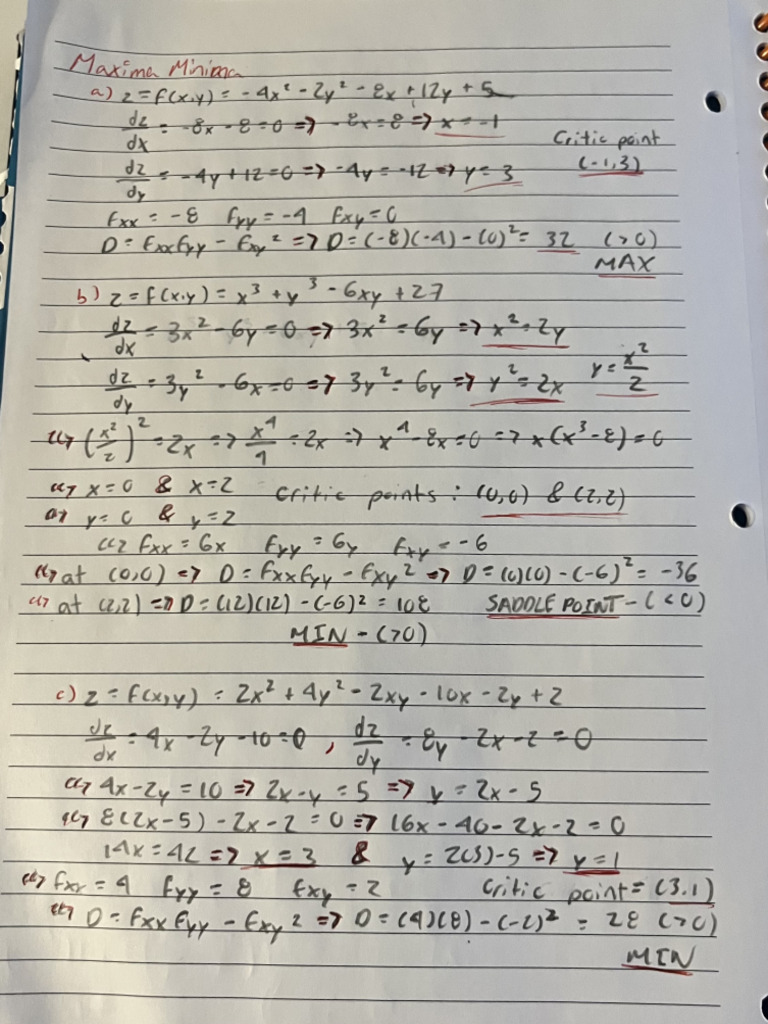 Maxima Minima
a) z = f(x,y) = -4x² - 2y² - 8x + 12y + 5
dz/dx = -8x - 8 = 0 => -8x = 8 => x = -1
Critic point
(-1,3)
dz/dy = -4y + 12 = 0 => -4y = -12 => y = 3
Fxx = -8 Fyy = -4 Fxy = 0
D = FxxFyy - Fxy² => D = (-8)(-4) - (0)² = 32 (>0)
MAX
b) z = f(x,y) = x³ + y³ - 6xy + 27
dz/dx = 3x² - 6y = 0 => 3x² = 6y => x² = 2y
dz/dy = 3y² - 6x = 0 => 3y² = 6y => y² = 2x y = x²/2
(x²/2)² = 2x => x⁴/4 = 2x => x⁴ - 8x = 0 => x(x³ - 8) = 0
x = 0 & x = 2 Critic points : (0,0) & (2,2)
y = 0 & y = 2
Fxx = 6x Fyy = 6y Fxy = -6
at (0,0) => D = FxxFyy - Fxy² => D = (0)(0) - (-6)² = -36
at (2,2) => D = (12)(12) - (-6)² = 108 SADDLE POINT - (<0)
MIN - (>0)
c) z = f(x,y) = 2x² + 4y² - 2xy - 10x - 2y + 2
dz/dx = 4x - 2y - 10 = 0 , dz/dy = 8y - 2x - 2 = 0
4x - 2y = 10 => 2x - y = 5 => y = 2x - 5
8(2x - 5) - 2x - 2 = 0 => 16x - 40 - 2x - 2 = 0
14x = 42 => x = 3 & y = 2(3) - 5 => y = 1
Fxx = 4 Fyy = 8 Fxy = 2 Critic point = (3.1)
D = FxxFyy - Fxy² => D = (4)(8) - (-2)² = 28 (>0)
MIN